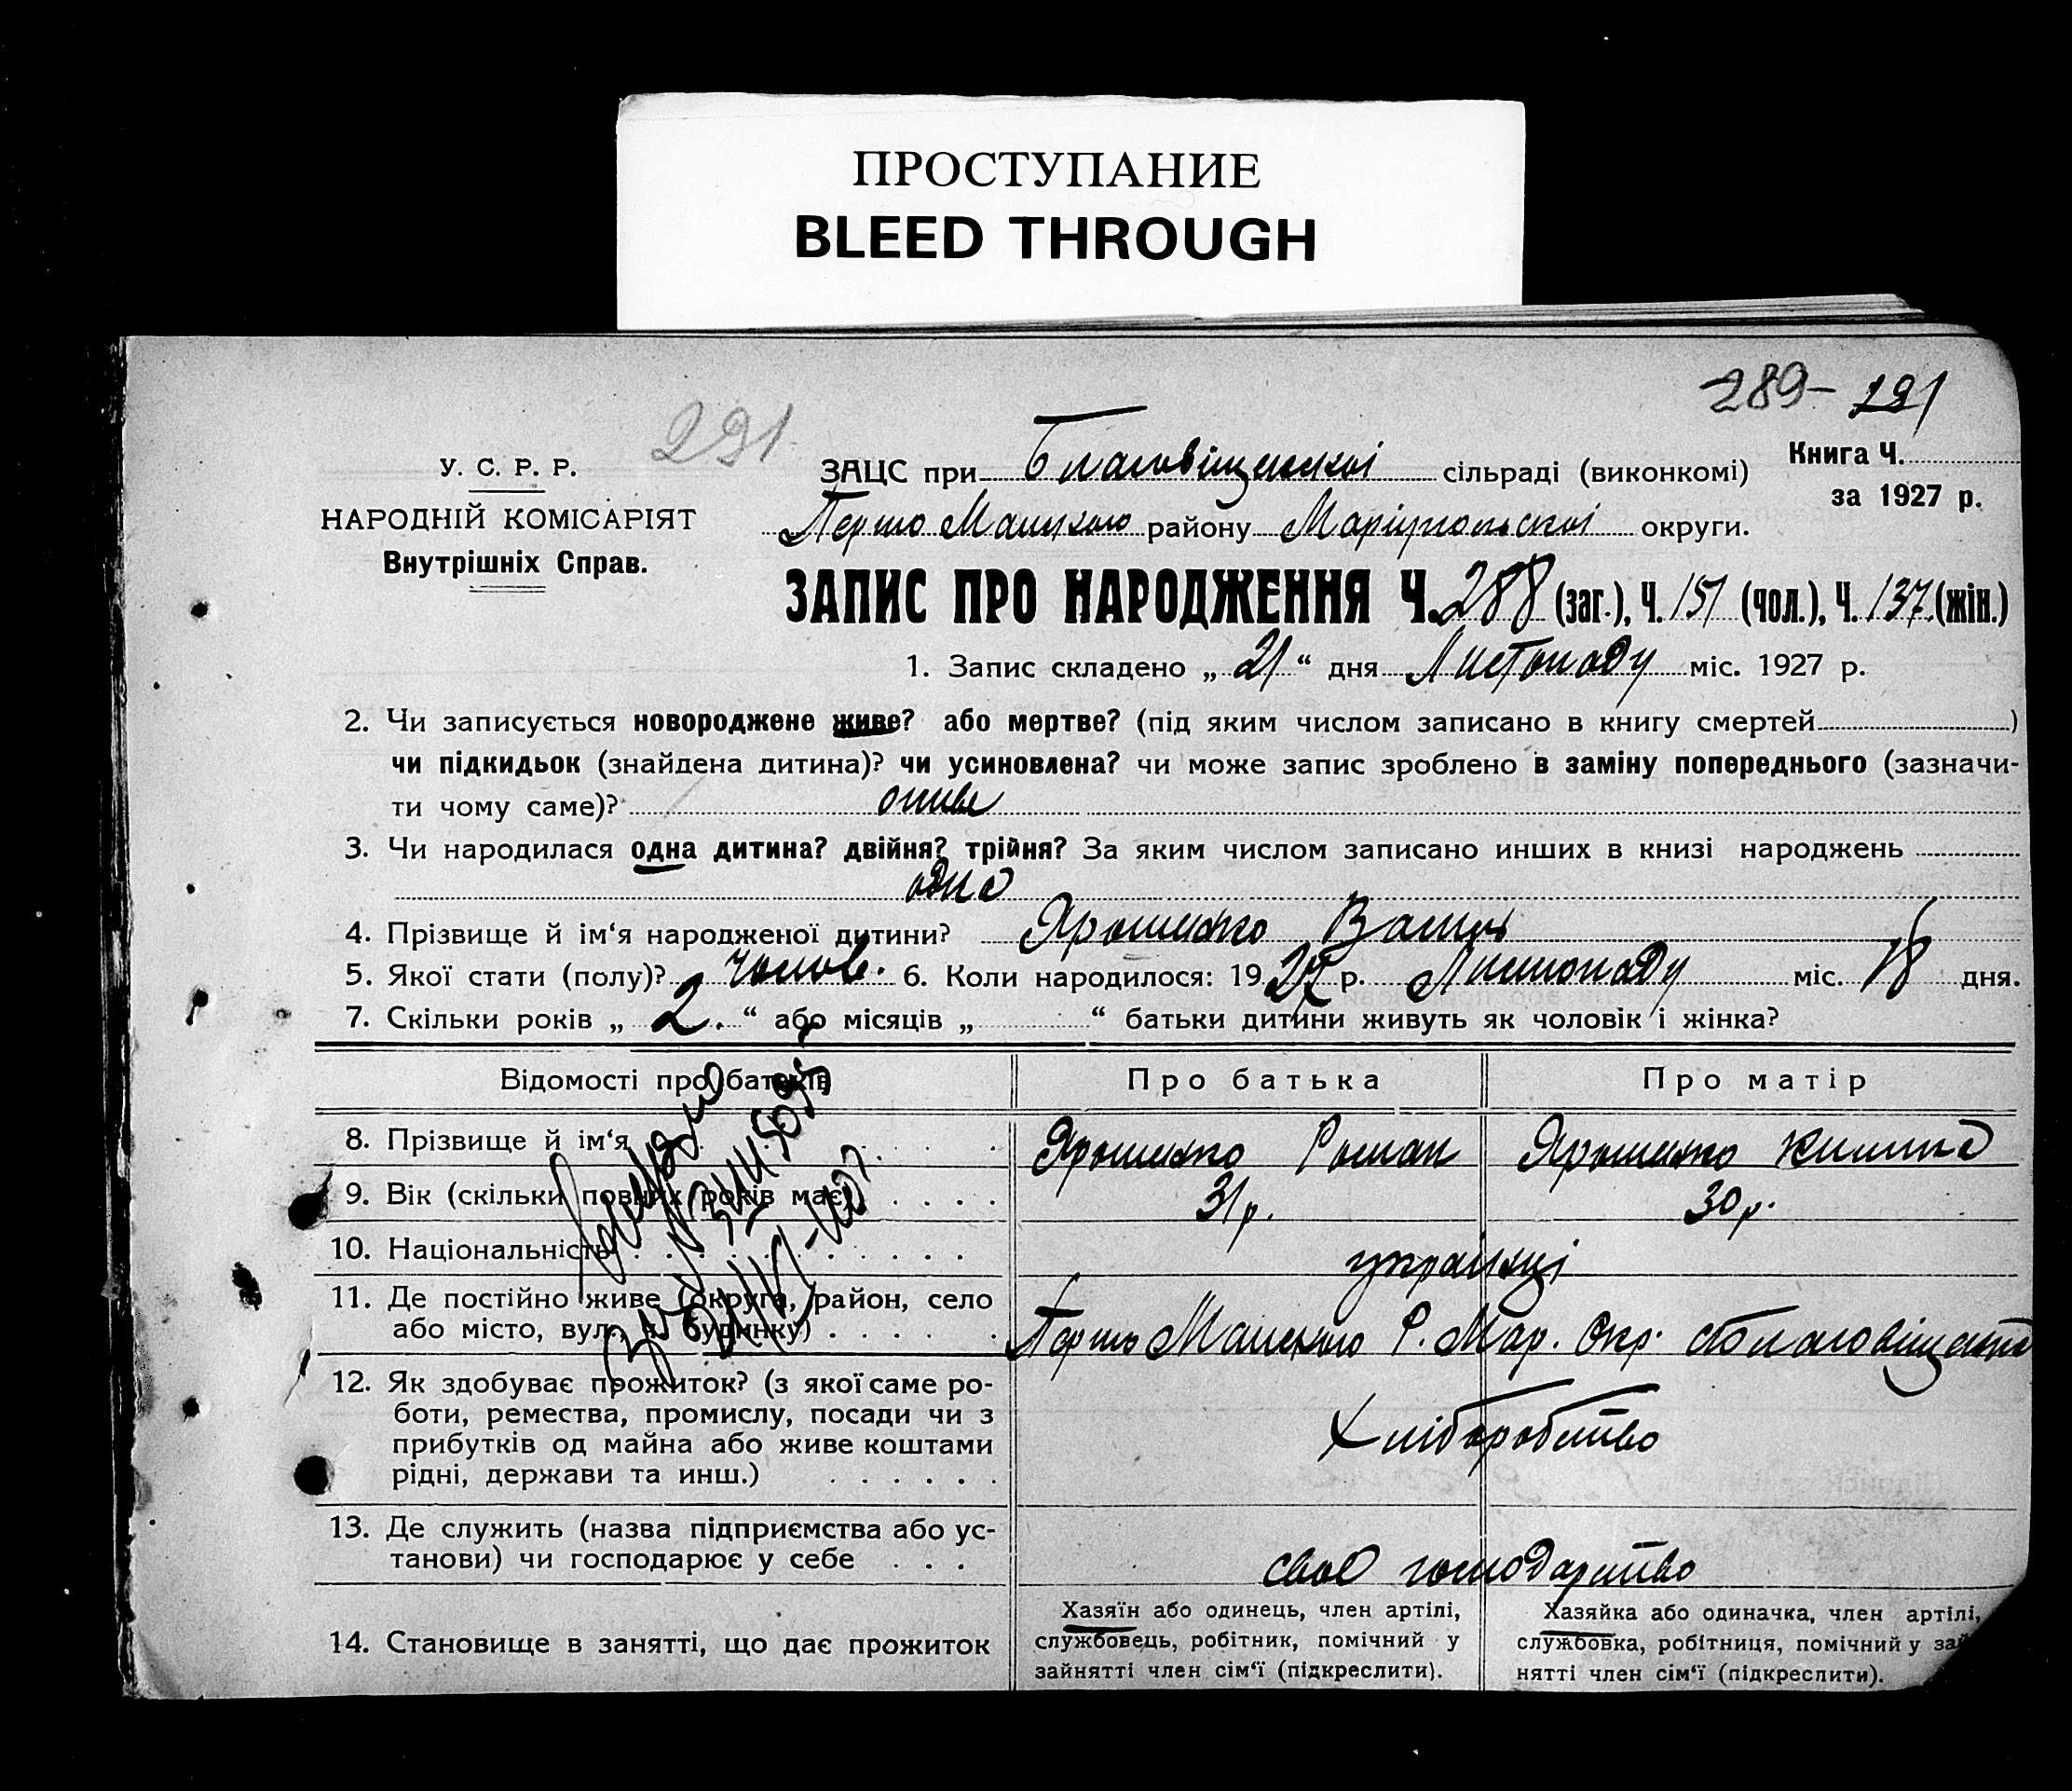 ПРОСТУПАНИЕ
BLEED THROUGH
289- 291
291
У. С. Р. Р.
НАРОДНІЙ КОМІСАРІЯТ
Внутрішніх Справ.
ЗАЦС при Благовіщенскої сільраді (виконкомі)
Книга Ч.
за 1927 р.
Першо Майского району Маріупольської округи.
ЗАПИС ПРО НАРОДЖЕННЯ Ч. 288 (заг.), Ч. 151 (чол.), Ч. 137 (жін.)
1. Запис складено „ 21 “ дня Листопаду міс. 1927 р.
2. Чи записується новороджене живе? або мертве? (під яким числом записано в книгу смертей )
чи підкидьок (знайдена дитина)? чи усиновлена? чи може запис зроблено в заміну попереднього (зазначи-
ти чому саме)? живе
3. Чи народилася одна дитина? двійня? трійня? За яким числом записано инших в книзі народжень
одна
4. Прізвище й ім‘я народженої дитини? Ярошенко
5. Якої стати (полу)? чолов. 6. Коли народилося: 1927 р. Листопаду міс. 18 дня.
7. Скільки років „ 2. “ або місяців „ “ батьки дитини живуть як чоловік і жінка?
Відомості про батьків
Про батька
Про матір
8. Прізвище й ім‘я
Ярошенко Роман
Ярошенко
9. Вік (скільки повних років має)
31 р.
30 р.
10. Національність
українці
11. Де постійно живе (округа, район, село
або місто, вул., ч. будинку)
Першо Майского Р. Мар. Окр.
12. Як здобуває прожиток? (з якої саме ро-
боти, ремества, промислу, посади чи з
прибутків од майна або живе коштами
рідні, держави та инш.)
Хліборобство
13. Де служить (назва підприємства або ус-
танови) чи господарює у себе
своє господарство
14. Становище в занятті, що дає прожиток
Хазяїн або одинець, член артілі,
службовець, робітник, помічний у
зайнятті член сім‘ї (підкреслити).
Хазяйка або одиначка, член артілі,
службовка, робітниця, помічний у зай
нятті член сім‘ї (підкреслити).